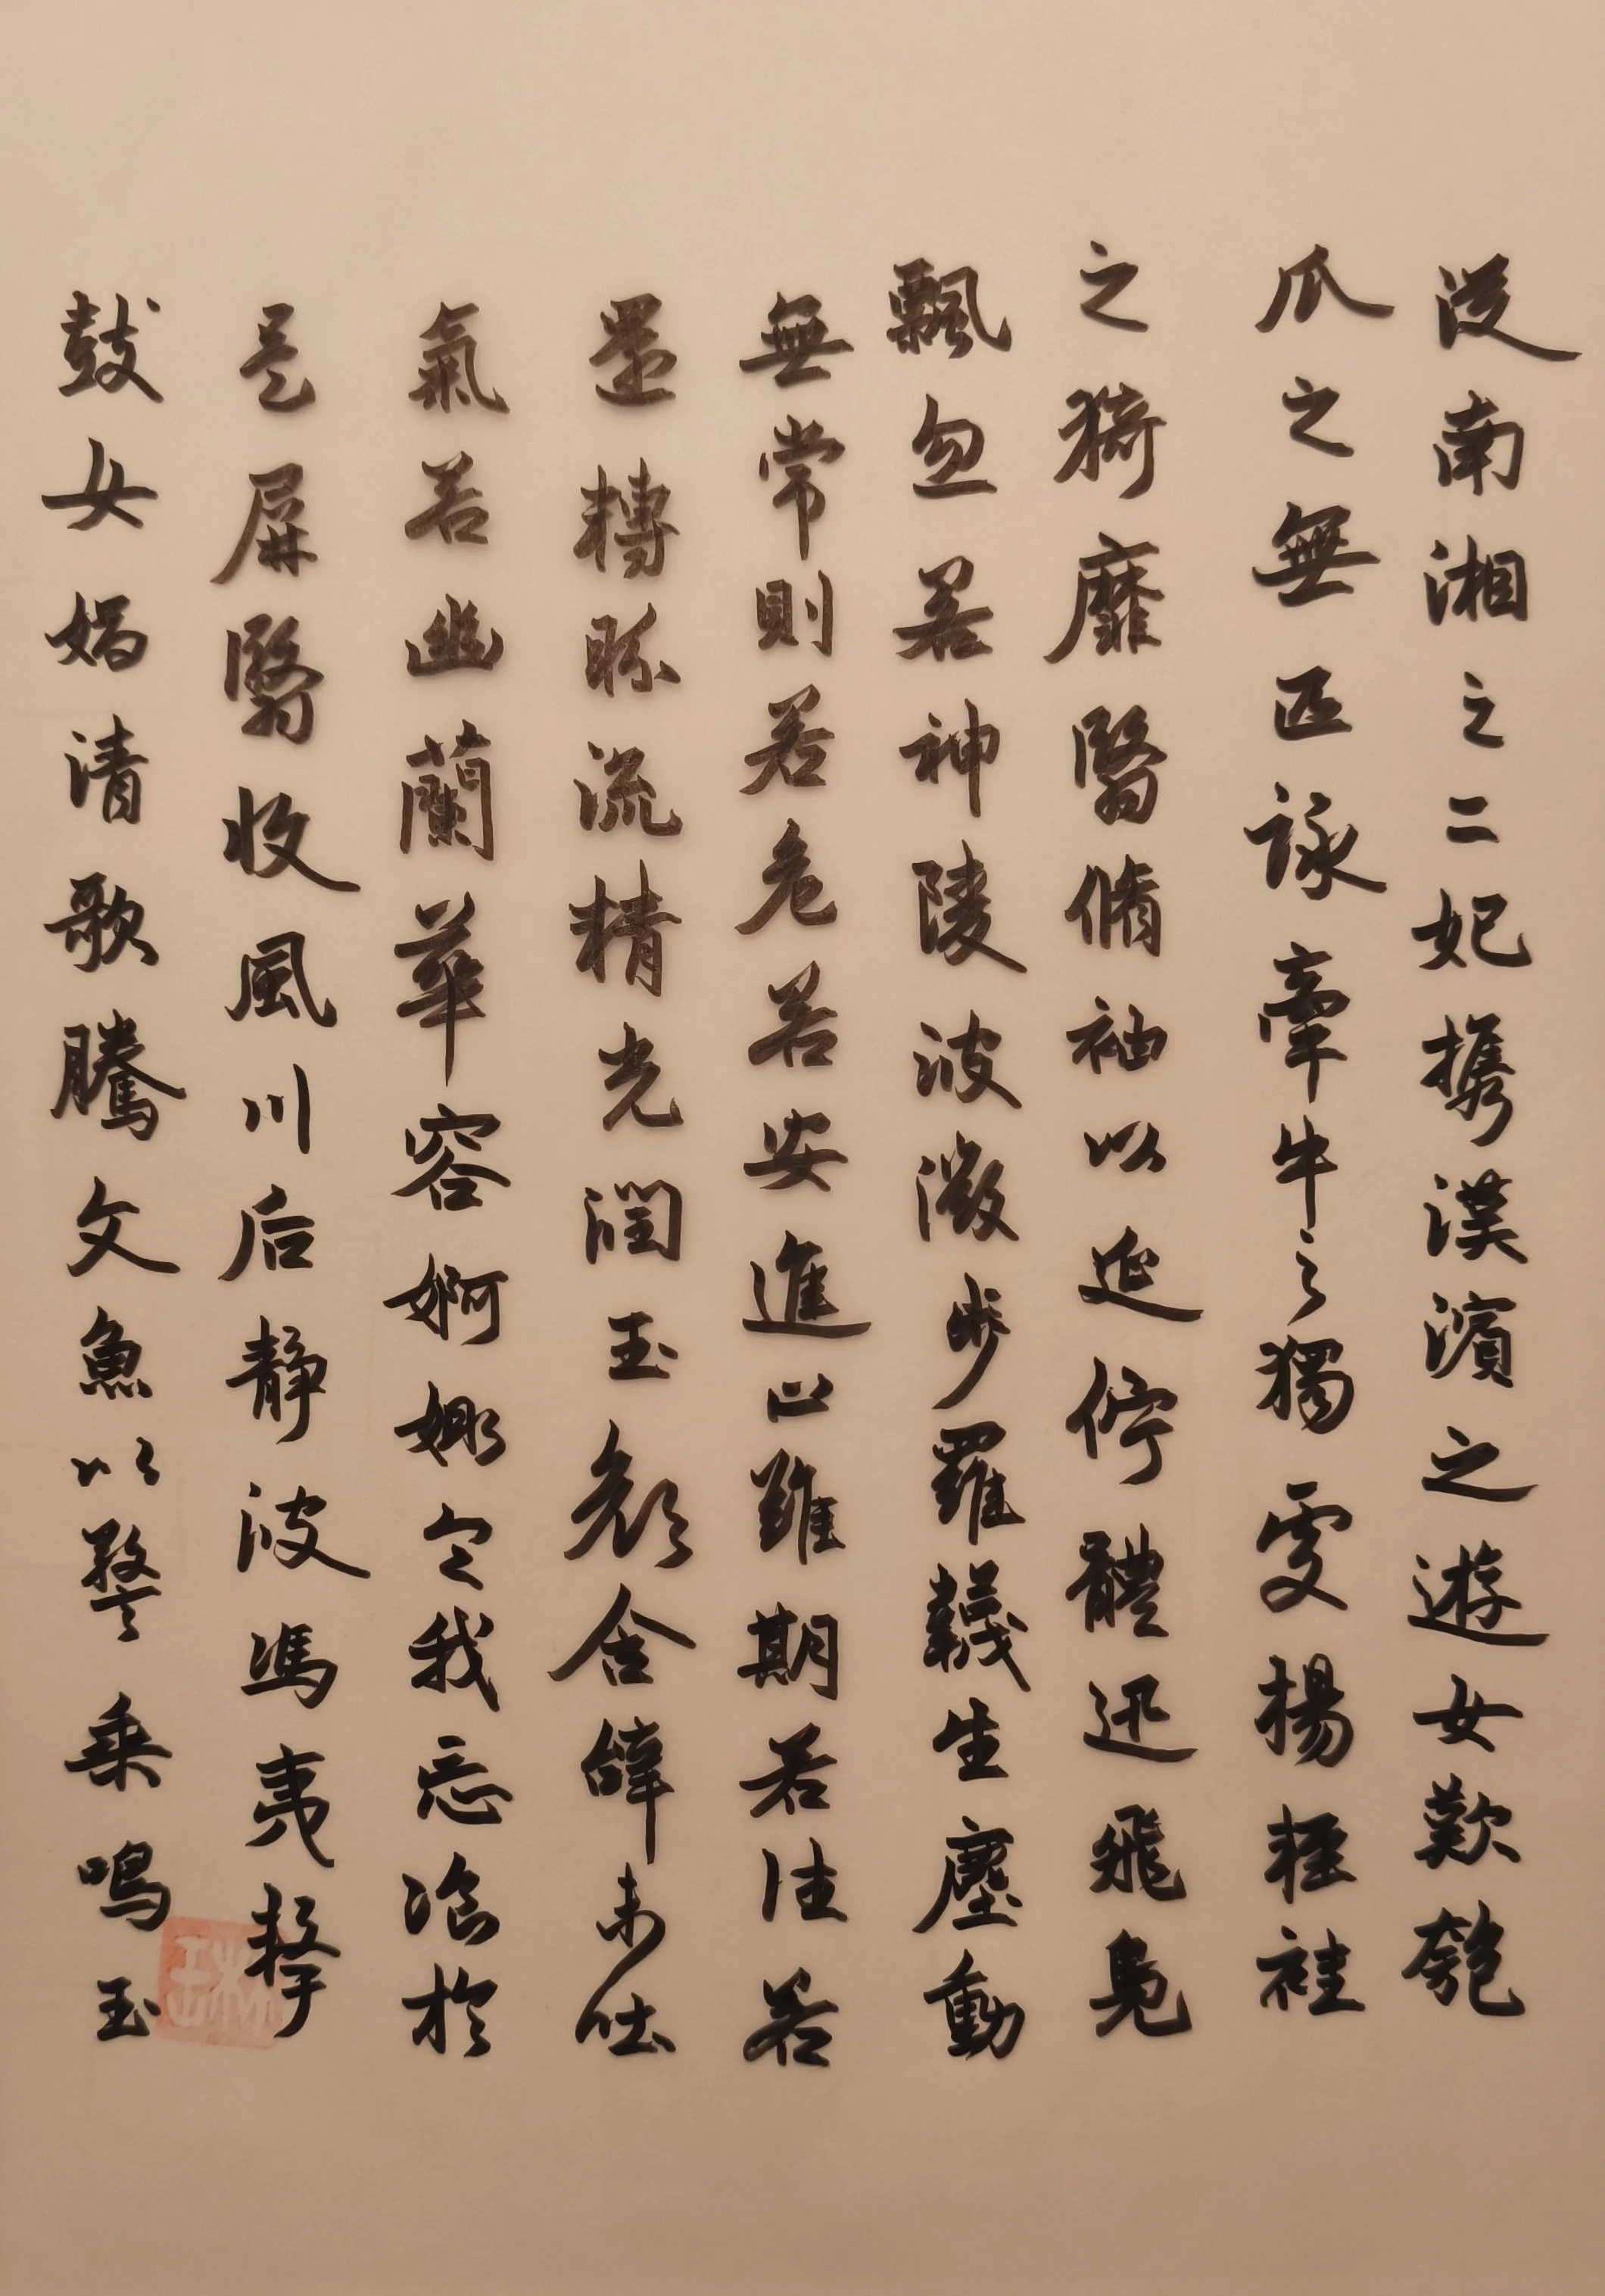 從南湘之二妃攜漢濱之遊女歎匏
瓜之無匹詠牽牛之獨處揚輕袿
之猗靡翳脩袖以延佇體迅飛鳧
飄忽若神陵波微步羅韈生塵動
無常則若危若安進止難期若往若
還轉眄流精光潤玉顏含辭未吐
氣若幽蘭華容婀娜令我忘飡於
是屏翳收風川后靜波馮夷擊
鼓女媧清歌騰文魚以警乘鳴玉